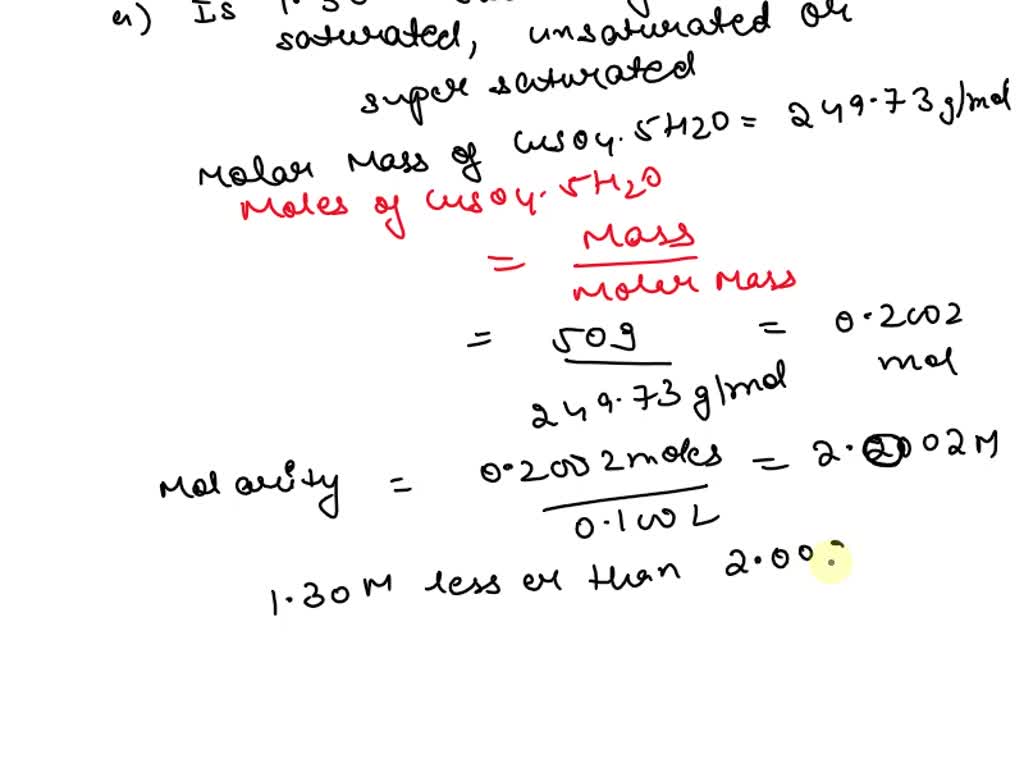 a) Is 1.30
saturated, unsaturated or
super saturated
Molar Mass of CuSO4.5H2O = 249.73 g/mol
Moles of CuSO4.5H2O
= Mass
Molar Mass
= 50g = 0.2002
249.73 g/mol mol
Molarity = 0.2002 moles = 2.002 M
0.100 L
1.30 M less er than 2.00